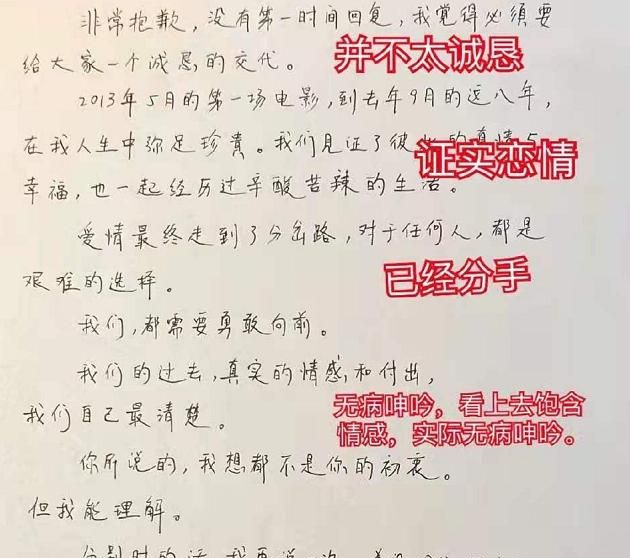 非常抱歉，没有第一时间回复，我觉得必须要
给大家一个诚恳的交代。
并不太诚恳
2013年5月的第一场电影，到去年9月的这八年，
在我人生中弥足珍贵。我们见证了彼此的真情与
证实恋情
幸福，也一起经历过辛酸苦辣的生活。
爱情最终走到了分岔路，对于任何人，都是
艰难的选择。
已经分手
我们，都需要勇敢向前。
我们的过去，真实的情感和付出，
我们自己最清楚。
无病呻吟，看上去饱含
情感，实际无病呻吟。
你所说的，我想都不是你的初衷。
但我能理解。
分别时的话，我再说一次